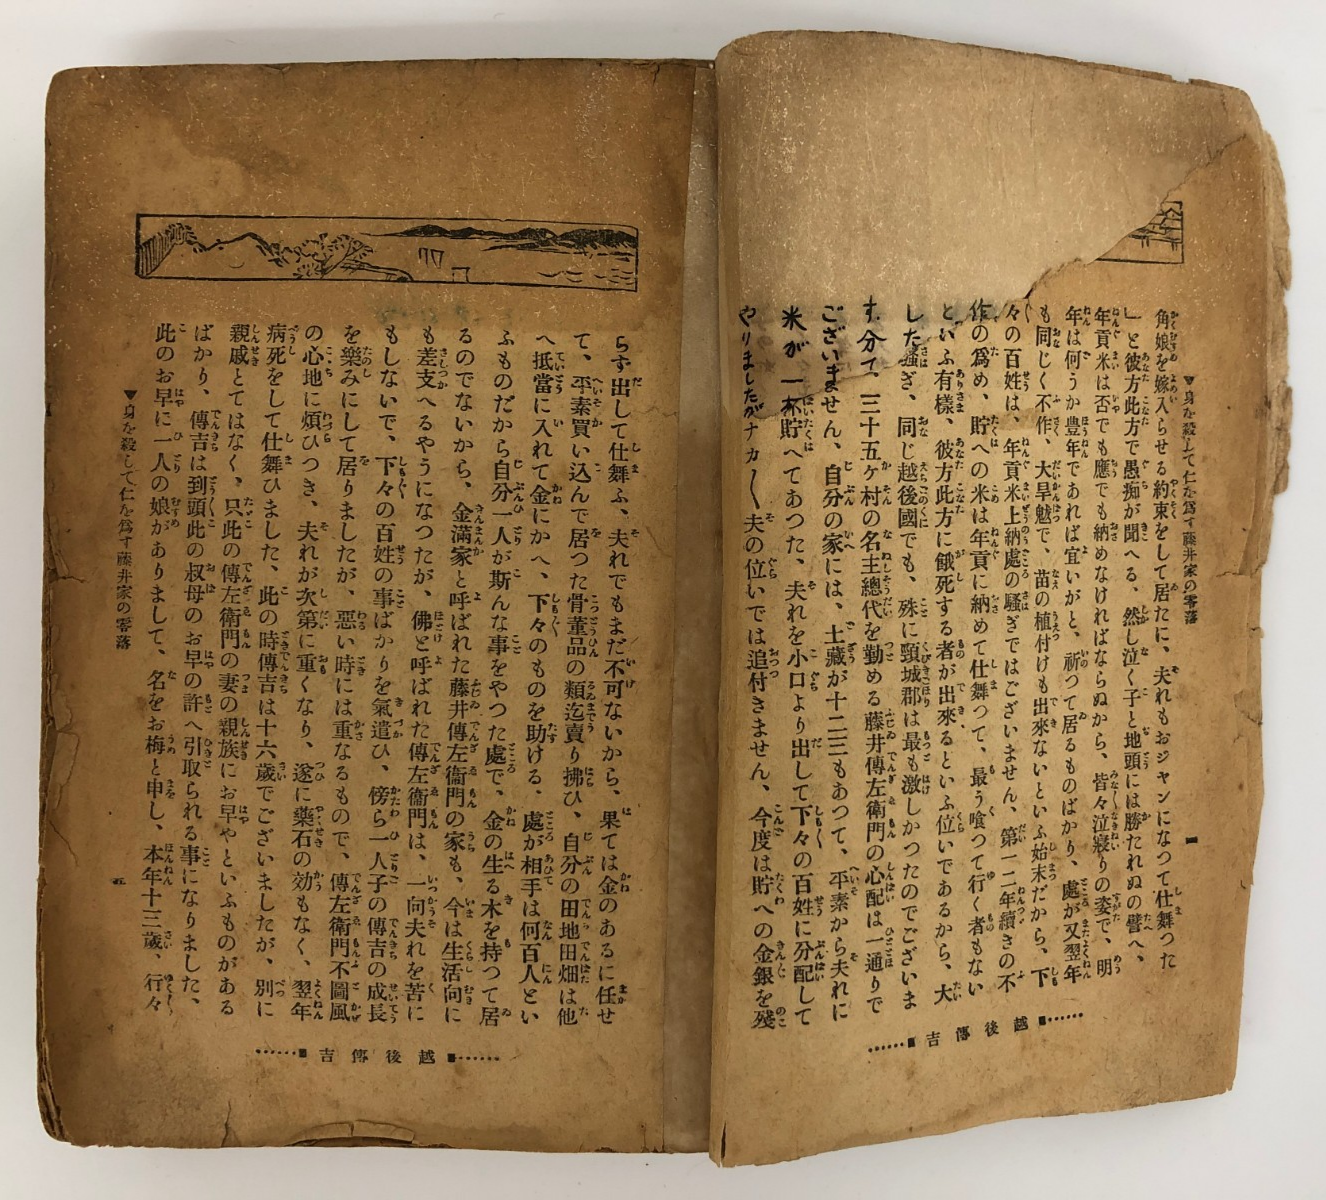 ▼身を殺して仁を爲す藤井家の零落
角娘を嫁入らせる約束をして居たに、夫れもおジャンになつて仕舞つた
」と彼方此方で愚痴が聞へる、然し泣く子と地頭には勝たれぬの譬へ、
年貢米は否でも應でも納めなければならぬから、皆々泣寢りの姿で、明
年は何うか豊年であれば宜いがと、祈つて居るものばかり、處が又翌年
も同じく不作、大旱魃で、苗の植付けも出來ないといふ始末だから、下
々の百姓は、年貢米上納處の騒ぎではございません、第一二年續きの不
作の爲め、貯への米は年貢に納めて仕舞つて、最う喰つて行く者もない
といふ有樣、彼方此方に餓死する者が出來るといふ位いであるから、大
した騒ぎ、同じ越後國でも、殊に頸城郡は最も激しかつたのでございま
す、分て、三十五ヶ村の名主總代を勤める藤井傳左衛門の心配は一通りで
ございません、自分の家には、土藏が十二三もあつて、平素から夫れに
米が一杯貯へてあつた、夫れを小口より出して下々の百姓に分配して
やりましたがナカ〱夫の位いでは追付きません、今度は貯への金銀を殘
……■越後傳吉■……
らず出して仕舞ふ、夫れでもまだ不可ないから、果ては金のあるに任せ
て、平素買い込んで居つた骨董品の類迄賣り拂ひ、自分の田地田畑は他
へ抵當に入れて金にかへ、下々のものを助ける、處が相手は何百人とい
ふものだから自分一人が斯んな事をやつた處で、金の生る木を持つて居
るのでないから、金滿家と呼ばれた藤井傳左衞門の家も、今は生活向に
も差支へるやうになつたが、佛と呼ばれた傳左衞門は、一向夫れを苦に
もしないで、下々の百姓の事ばかりを氣遣ひ、傍ら一人子の傳吉の成長
を樂みにして居りましたが、惡い時には重なるもので、傳左衛門不圖風
の心地に煩ひつき、夫れが次第に重くなり、遂に藥石の効もなく、翌年
病死をして仕舞ひました、此の時傳吉は十六歳でございましたが、別に
親戚とてはなく、只此の傳左衛門の妻の親族にお早やといふものがある
ばかり、傳吉は到頭此の叔母のお早の許へ引取られる事になりました、
此のお早に一人の娘がありまして、名をお梅と申し、本年十三歳、行々
▼身を殺して仁を爲す藤井家の零落
五
……■越後傳吉■……